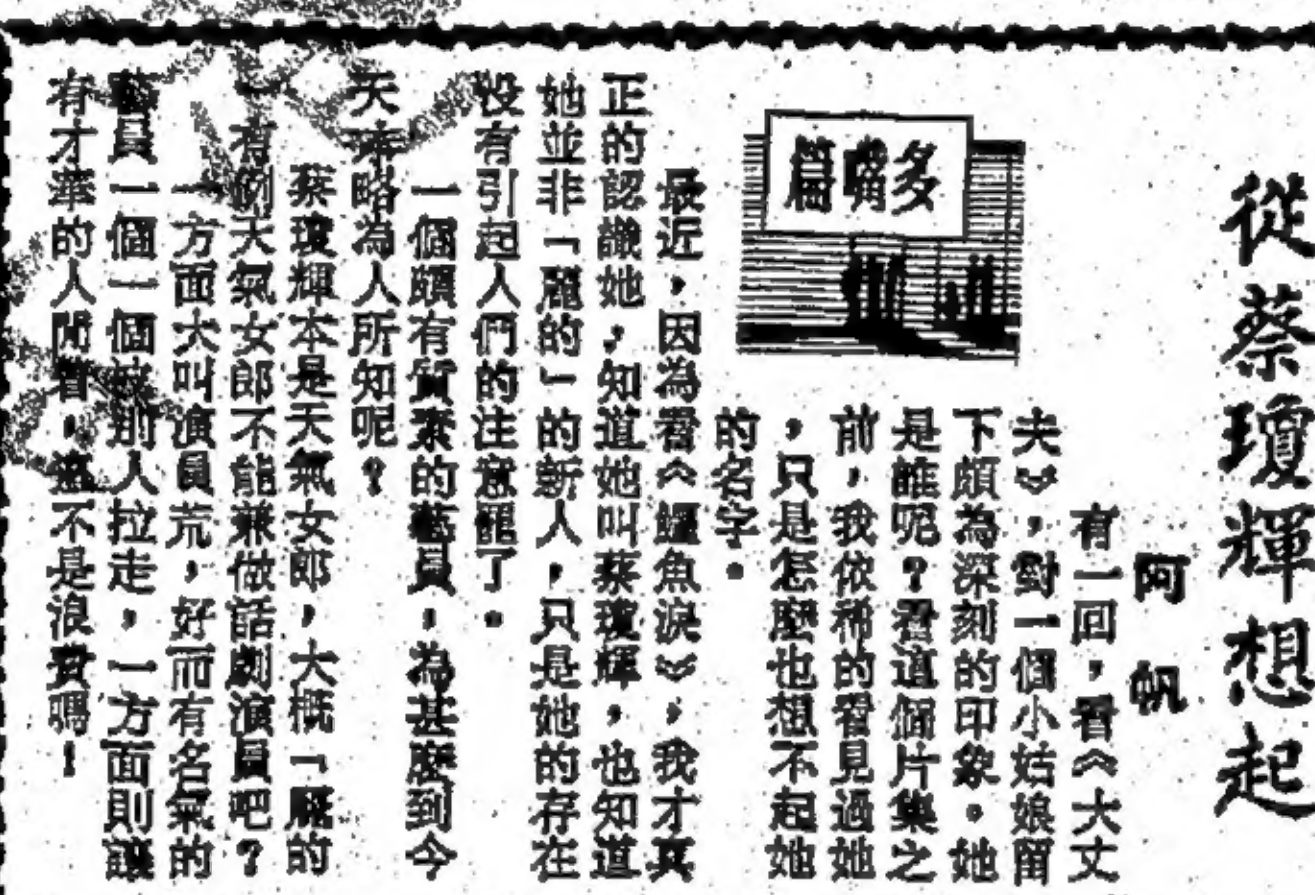 從蔡瓊輝想起
阿帆
多嘴篇
有一回，看《大丈
夫》，對一個小姑娘留
下頗為深刻的印象。她
是誰呢？看這個片集之
前，我依稀的看見過她
，只是怎麼也想不起她
的名字。
最近，因為看《鱷魚淚》，我才真
正的認識她，知道她叫蔡瓊輝，也知道
她並非「麗的」的新人，只是她的存在
沒有引起人們的注意罷了。
一個頗有質素的藝員，為甚麼到今
天才略為人所知呢？
蔡瓊輝本是天氣女郎，大概「麗的
」有例天氣女郎不能兼做話劇演員吧？
一方面大叫演員荒，好而有名氣的
藝員一個一個被別人拉走，一方面則讓
有才華的人閒着，無不是浪費嗎！